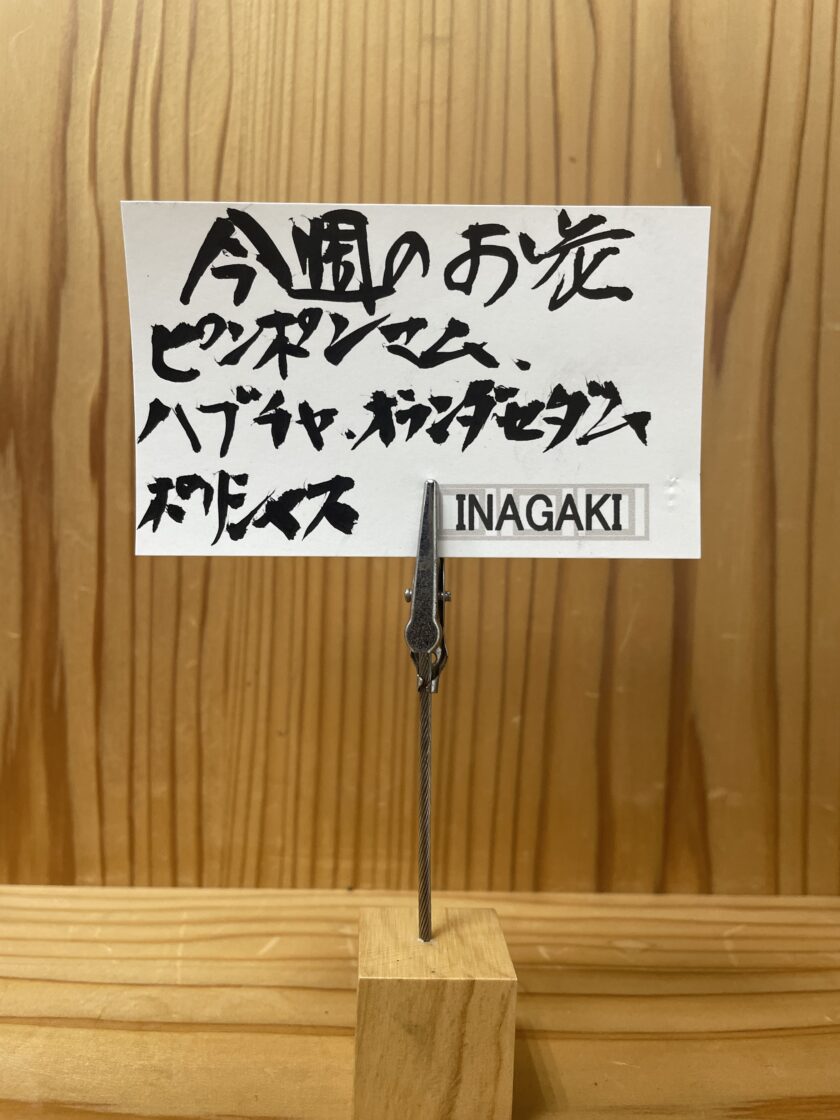 今週のお花
ピンポンマム、
ハブチャ、オランダセダム
ポリシャス
INAGAKI